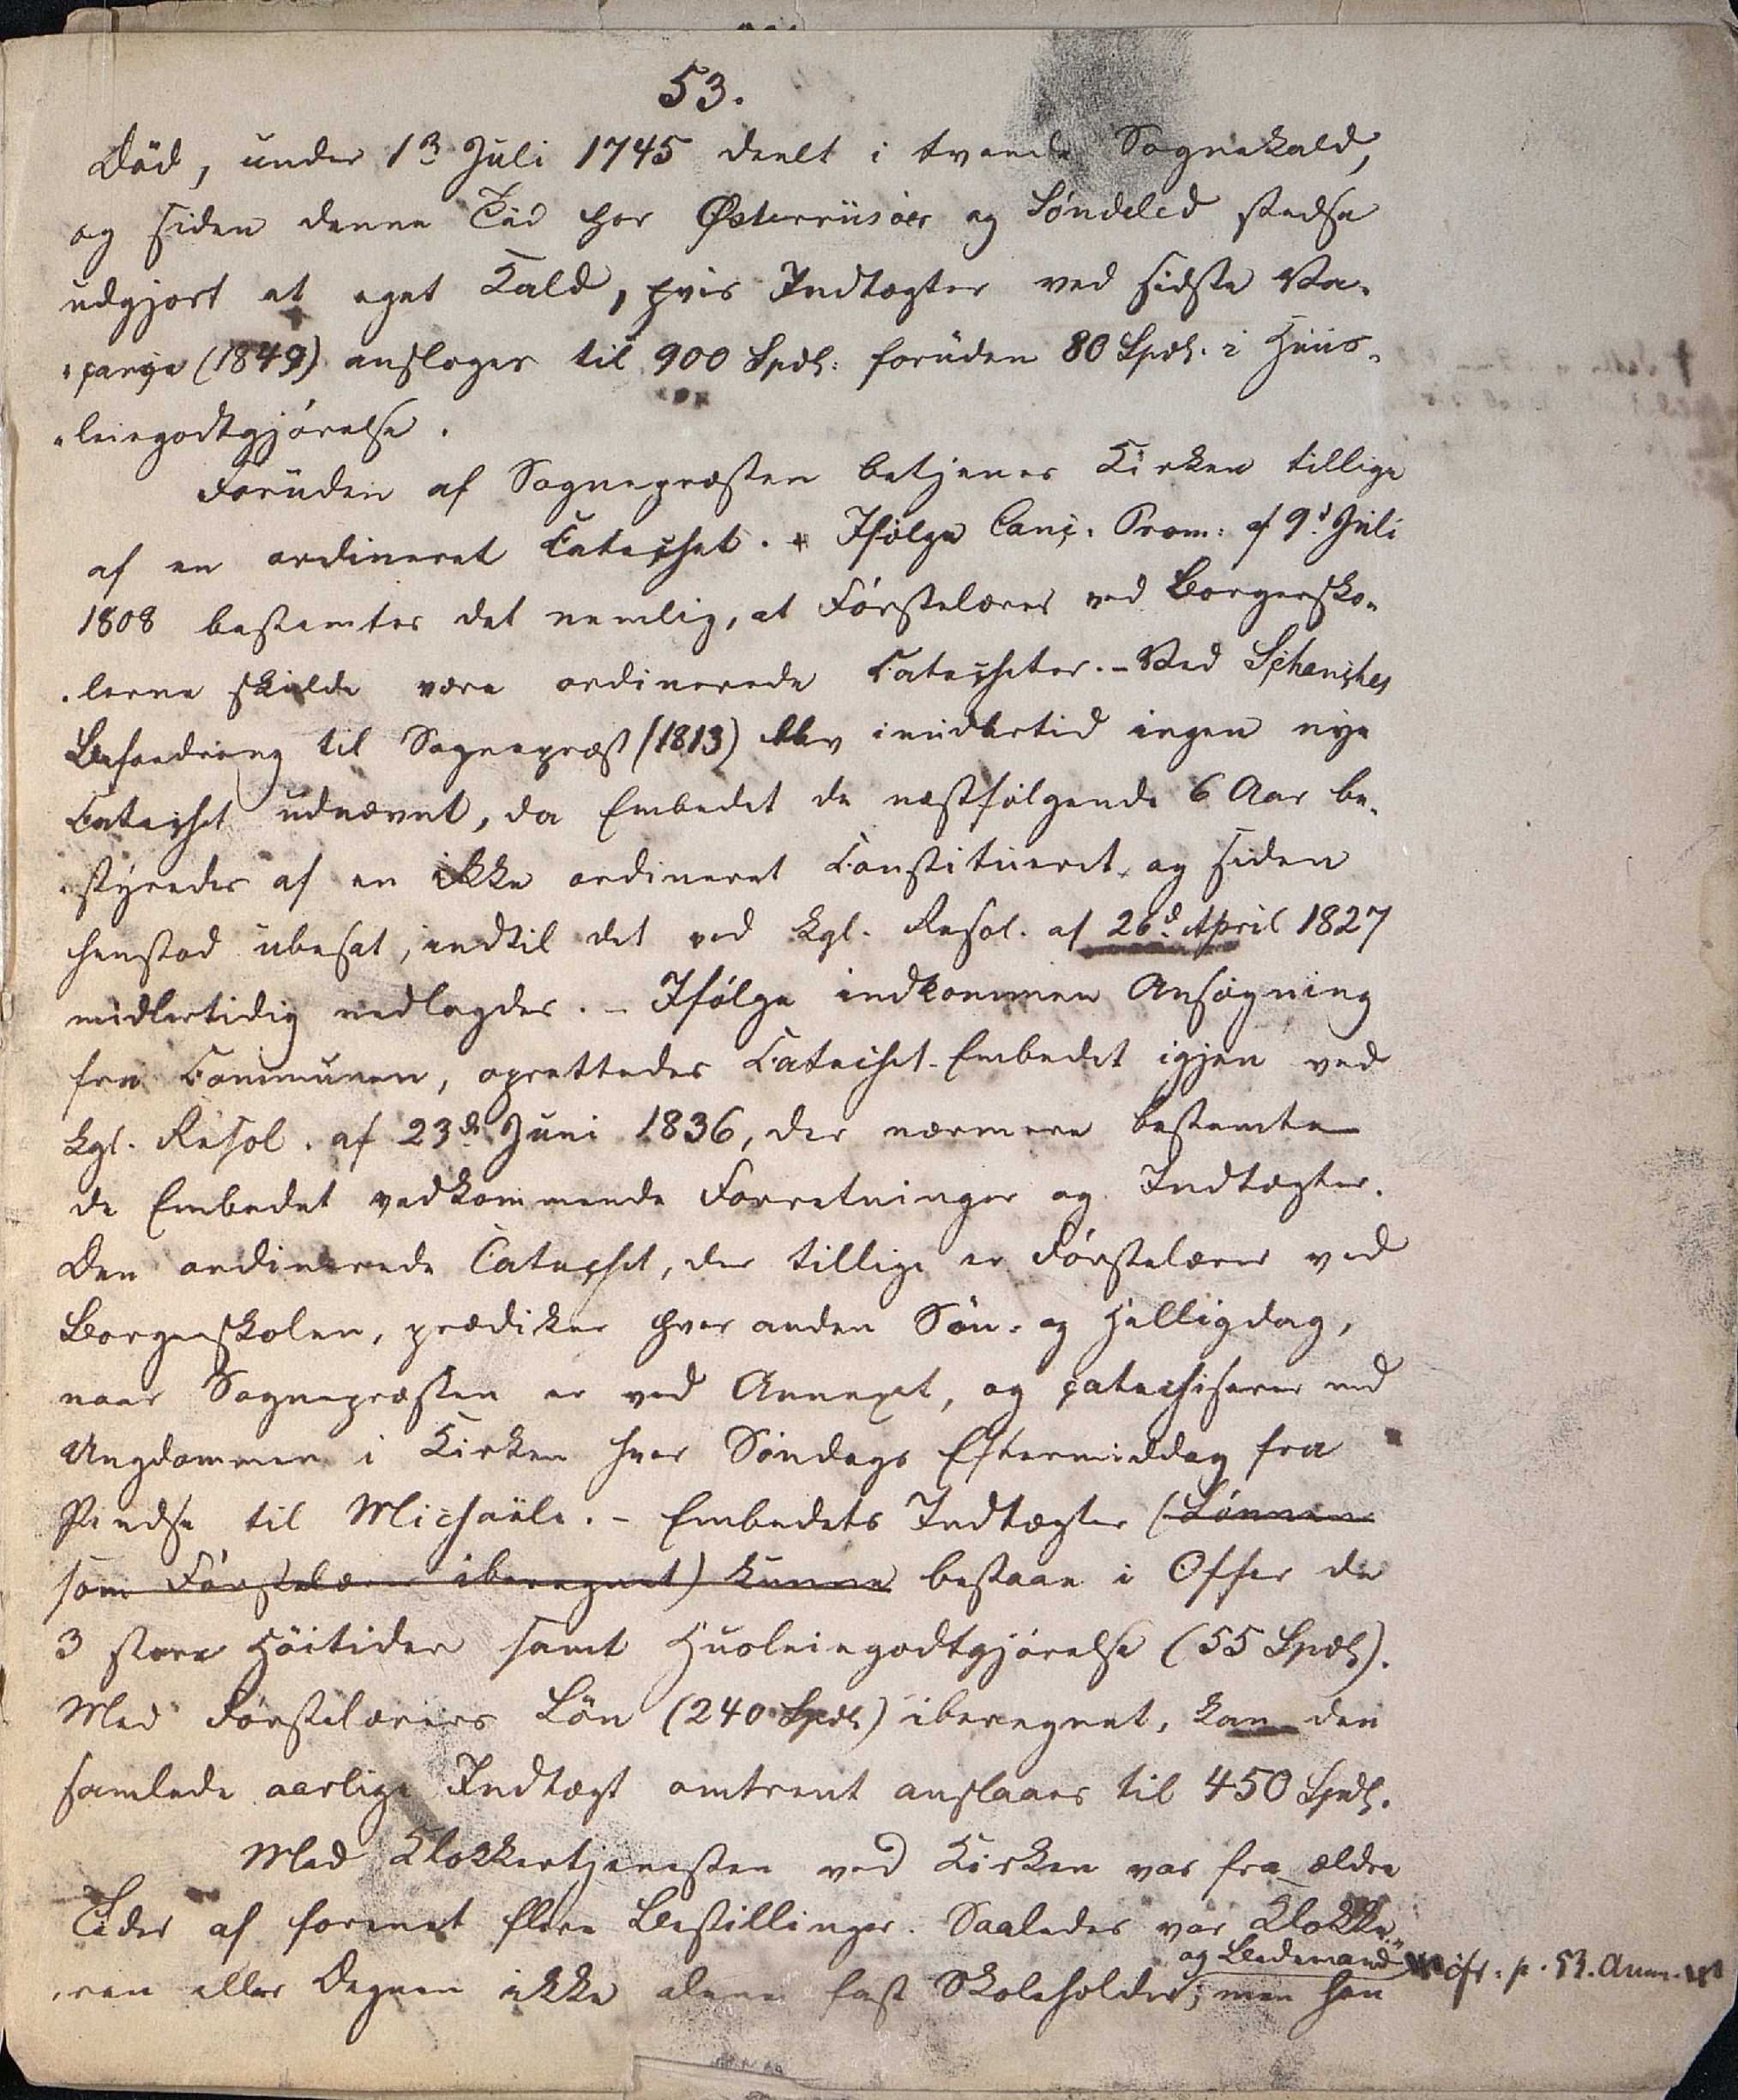 53.
Död, under 13 Juli 1745 deelt i tvende Sognekald,
og siden denne Tid har Østerriisöer og Söndeled stedse
udgjort et eget Kald, hvis Indtægter ved sidste Va-
-cance (1849) ansloges til 900 Spdl: foruden 80 Spdl. i Huus-
-leiegodtgjörelse.
Foruden af Sognepræsten betjenes Kirken tillige
af en ordineret Catechet. + Ifölge Canc. Prom: af 9d Juli
1808 bestemtes det nemlig, at Förstelærer ved Borgersko-
-lerne skulde være ordinerede Catecheter. - Ved Schenches
Befordring til Sognepræst (1813) blev imidlertid ingen nye
Catechet udnævnt, da Embedet de næstfölgende 6 Aar be-
-styredes af en ikke ordineret Constitueret og siden
henstod ubesat, indtil det ved kgl. Resol. af 26d April 1827
midlertidig nedlagdes. - Ifölge indkommen Ansögning
fra Communen, oprettedes Catechet-Embedet igjen ved
kgl. Resol. af 23de Juni 1836, der nærmere bestemte
de Embedet vedkommende Forretninger og Indtægter.
Den ordinerede Catechet, der tillige er Förstelærer ved
Borgerskolen, prædiker hver anden Sön- og Helligdag,
naar Sognepræsten er ved Annexet, og catechiserer med
Ungdommen i Kirken hver Söndags Eftermiddag fra
Pindse til Michaële. - Embedets Indtægter (Lönnen
som Förstelærer iberegnet) kunne bestaae i Offer de
3 store Höitider samt Huusleiegodtgjörelse (55 Spdl).
Med Förstelærers Lön (240 Spdl) iberegnet, kan den
samlede aarlige Indtægt omtrent anslaaes til 450 Spdl.
Med Klokkertjenesten ved Kirken var fra ældre
Tider af forenet flere Bestillinger. Saaledes var Klokke-
og Bedemand cfr. p. 53. Anm.
-ren eller Degnen ikke alene fast Skoleholder; men han